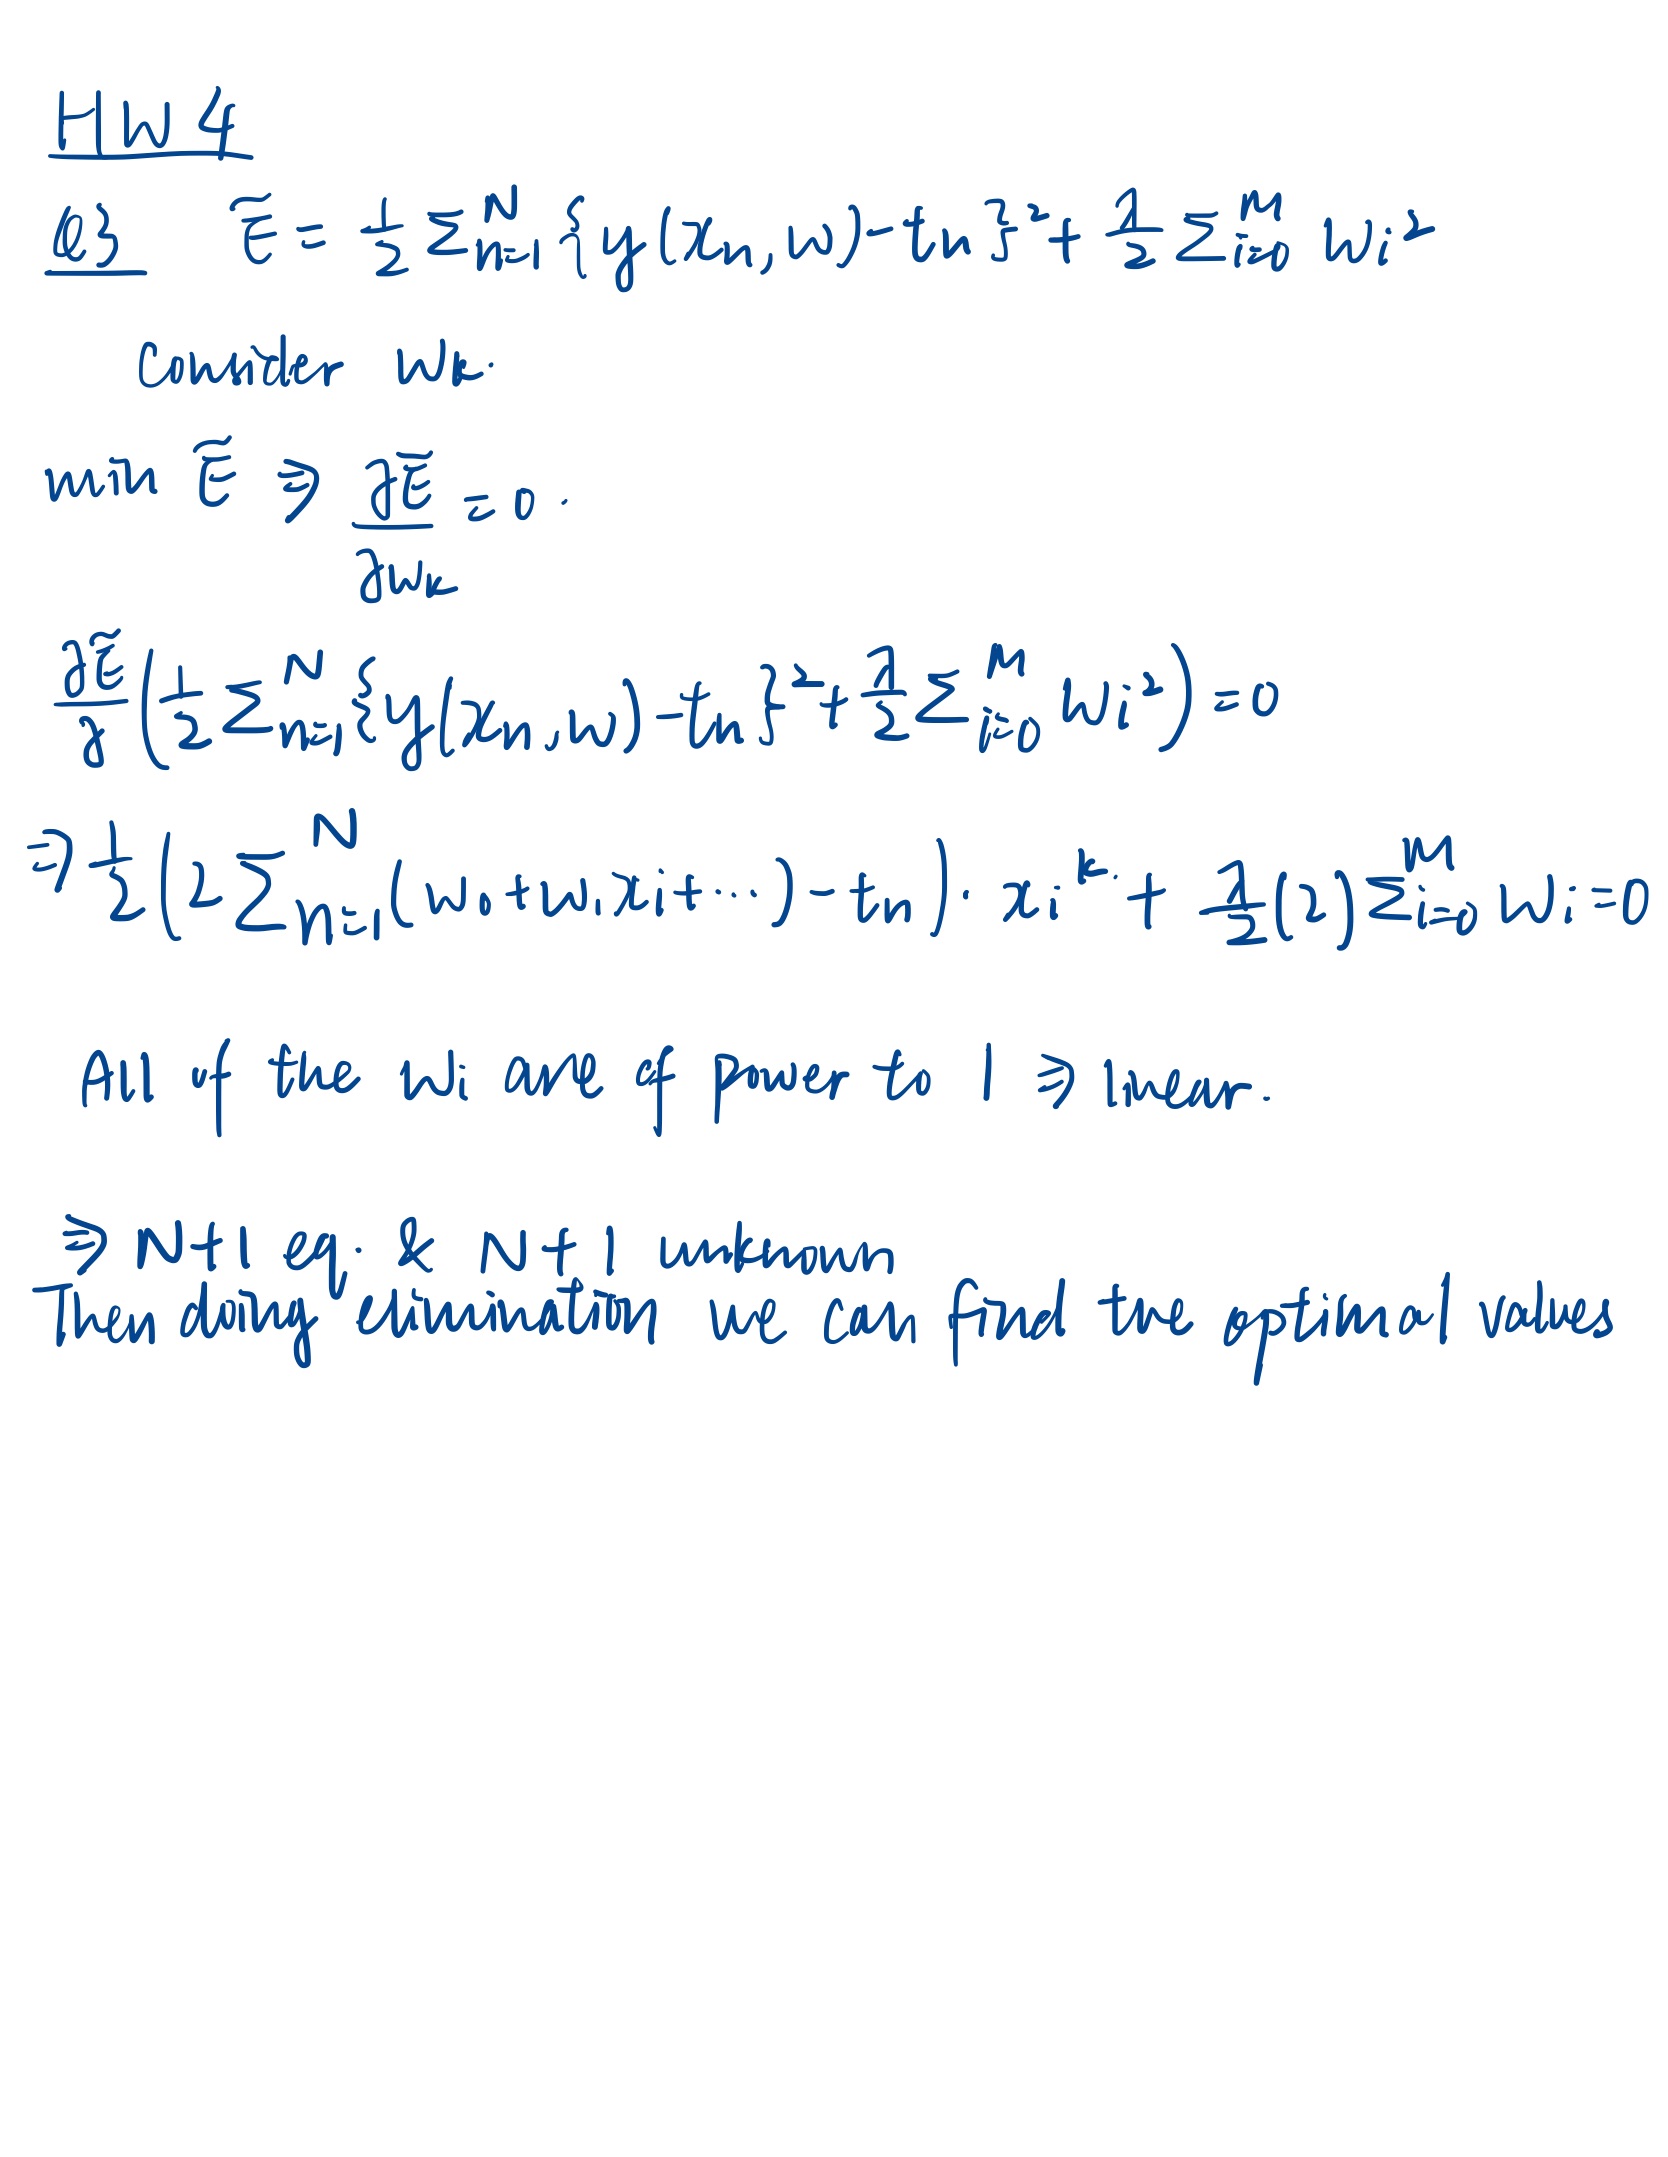 HW4
Q3 Ẽ = 1/2 Σ_{n=1}^{N} {y(x_n, w) - t_n}² + λ/2 Σ_{i=0}^{M} w_i²
Consider w_k.
min Ẽ ⇒ ∂Ẽ/∂w_k = 0.
∂Ẽ/∂ (1/2 Σ_{n=1}^{N} {y(x_n, w) - t_n}² + λ/2 Σ_{i=0}^{M} w_i²) = 0
⇒ 1/2 (2 Σ_{n=1}^{N} (w_0 + w_1 x_i + ...) - t_n) · x_i^k + λ/2 (2) Σ_{i=0}^{M} w_i = 0
All of the w_i are of power to 1 ⇒ linear.
⇒ N+1 eq. & N+1 unknown
Then doing elimination we can find the optimal values